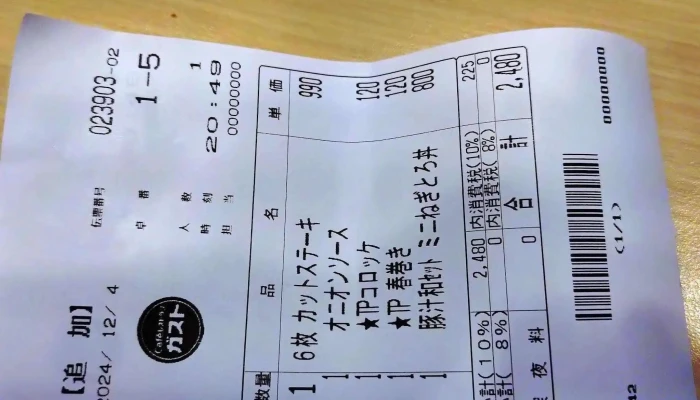 【追 加】
2024/ 12/ 4
Café レストラン
ガスト
伝票番号 023903-02
卓 番 1-5
人 数 1
時 刻 20:49
担 当 00000000
数量 品 名 単 価
1 6枚 カットステーキ 990
1 オニオンソース
1 ★TPコロッケ 120
1 ★TP 春巻き 120
1 豚汁和セット ミニねぎとろ丼 800
小計(10%) 2,480 内消費税(10%) 225
小計( 8%) 0 内消費税( 8%) 0
深 夜 料 0 合 計 2,480
(1/1) 00000000